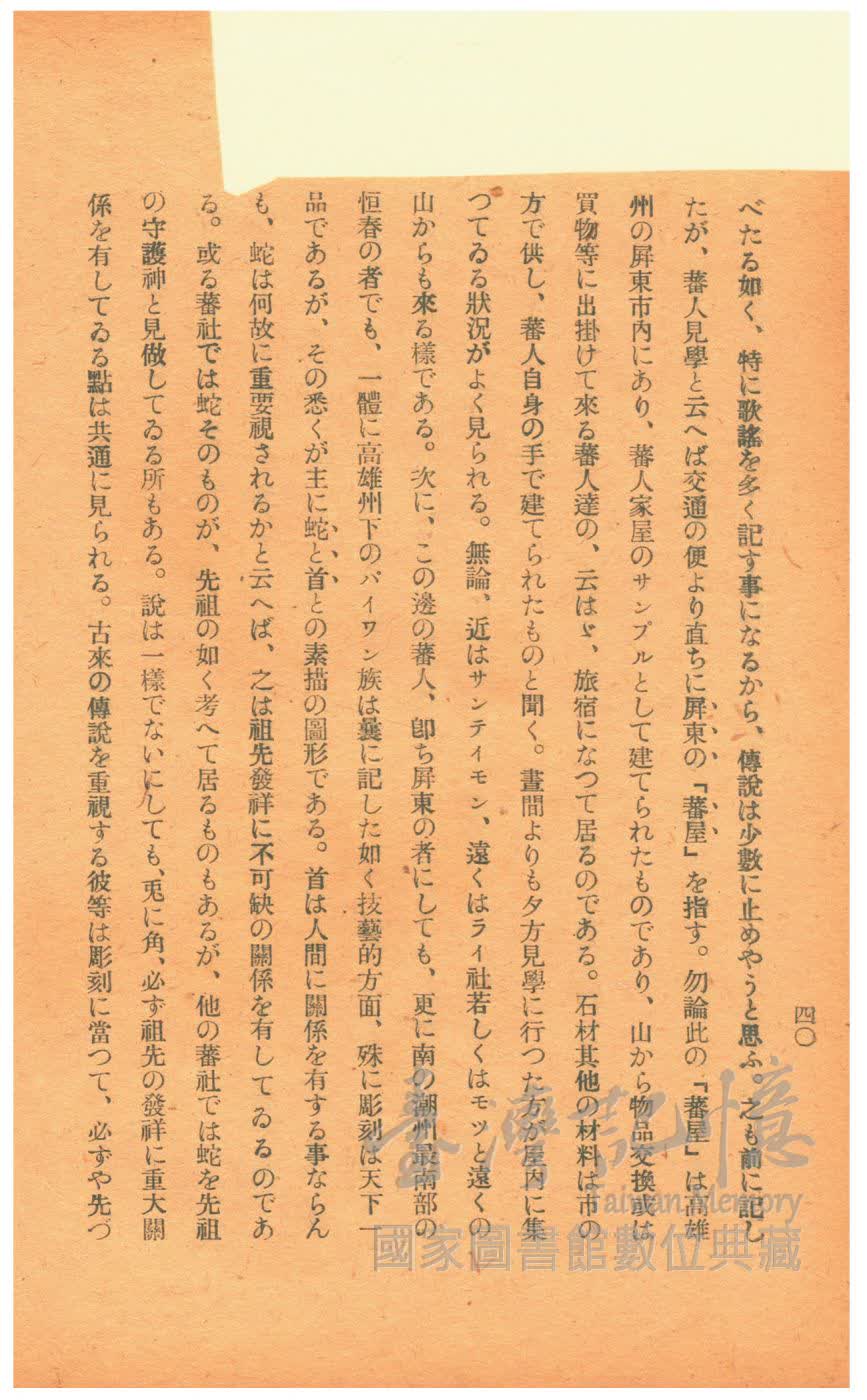 四〇
べたる如く、特に歌謠を多く記す事になるから、傳說は少數に止めやうと思ふ。之も前に記し
たが、蕃人見學と云へば交通の便より直ちに屛東の「蕃屋」を指す。勿論此の「蕃屋」は高雄
州の屛東市內にあり、蕃人家屋のサンプルとして建てられたものであり、山から物品交換或は
買物等に出掛けて來る蕃人達の、云はゞ、旅宿になつて居るのである。石材其他の材料は市の
方で供し、蕃人自身の手で建てられたものと聞く。晝間よりも夕方見學に行つた方が屋內に集
つてゐる狀況がよく見られる。無論、近はサンテイモン、遠くはライ社若しくはモツと遠くの
山からも來る樣である。次に、この邊の蕃人、卽ち屛東の者にしても、更に南の潮州最南部の
恒春の者でも、一體に高雄州下のパイワン族は曩に記した如く技藝的方面、殊に彫刻は天下一
品であるが、その悉くが主に蛇と首との素描の圖形である。首は人間に關係を有する事ならん
も、蛇は何故に重要視されるかと云へば、之は祖先發祥に不可缺の關係を有してゐるのであ
る。或る蕃社では蛇そのものが、先祖の如く考へて居るものもあるが、他の蕃社では蛇を先祖
の守護神と見做してゐる所もある。說は一樣でないにしても、兎に角、必ず祖先の發祥に重大關
係を有してゐる點は共通に見られる。古來の傳說を重視する彼等は彫刻に當つて、必ずや先づ
臺灣記憶
Taiwan Memory
國家圖書館數位典藏